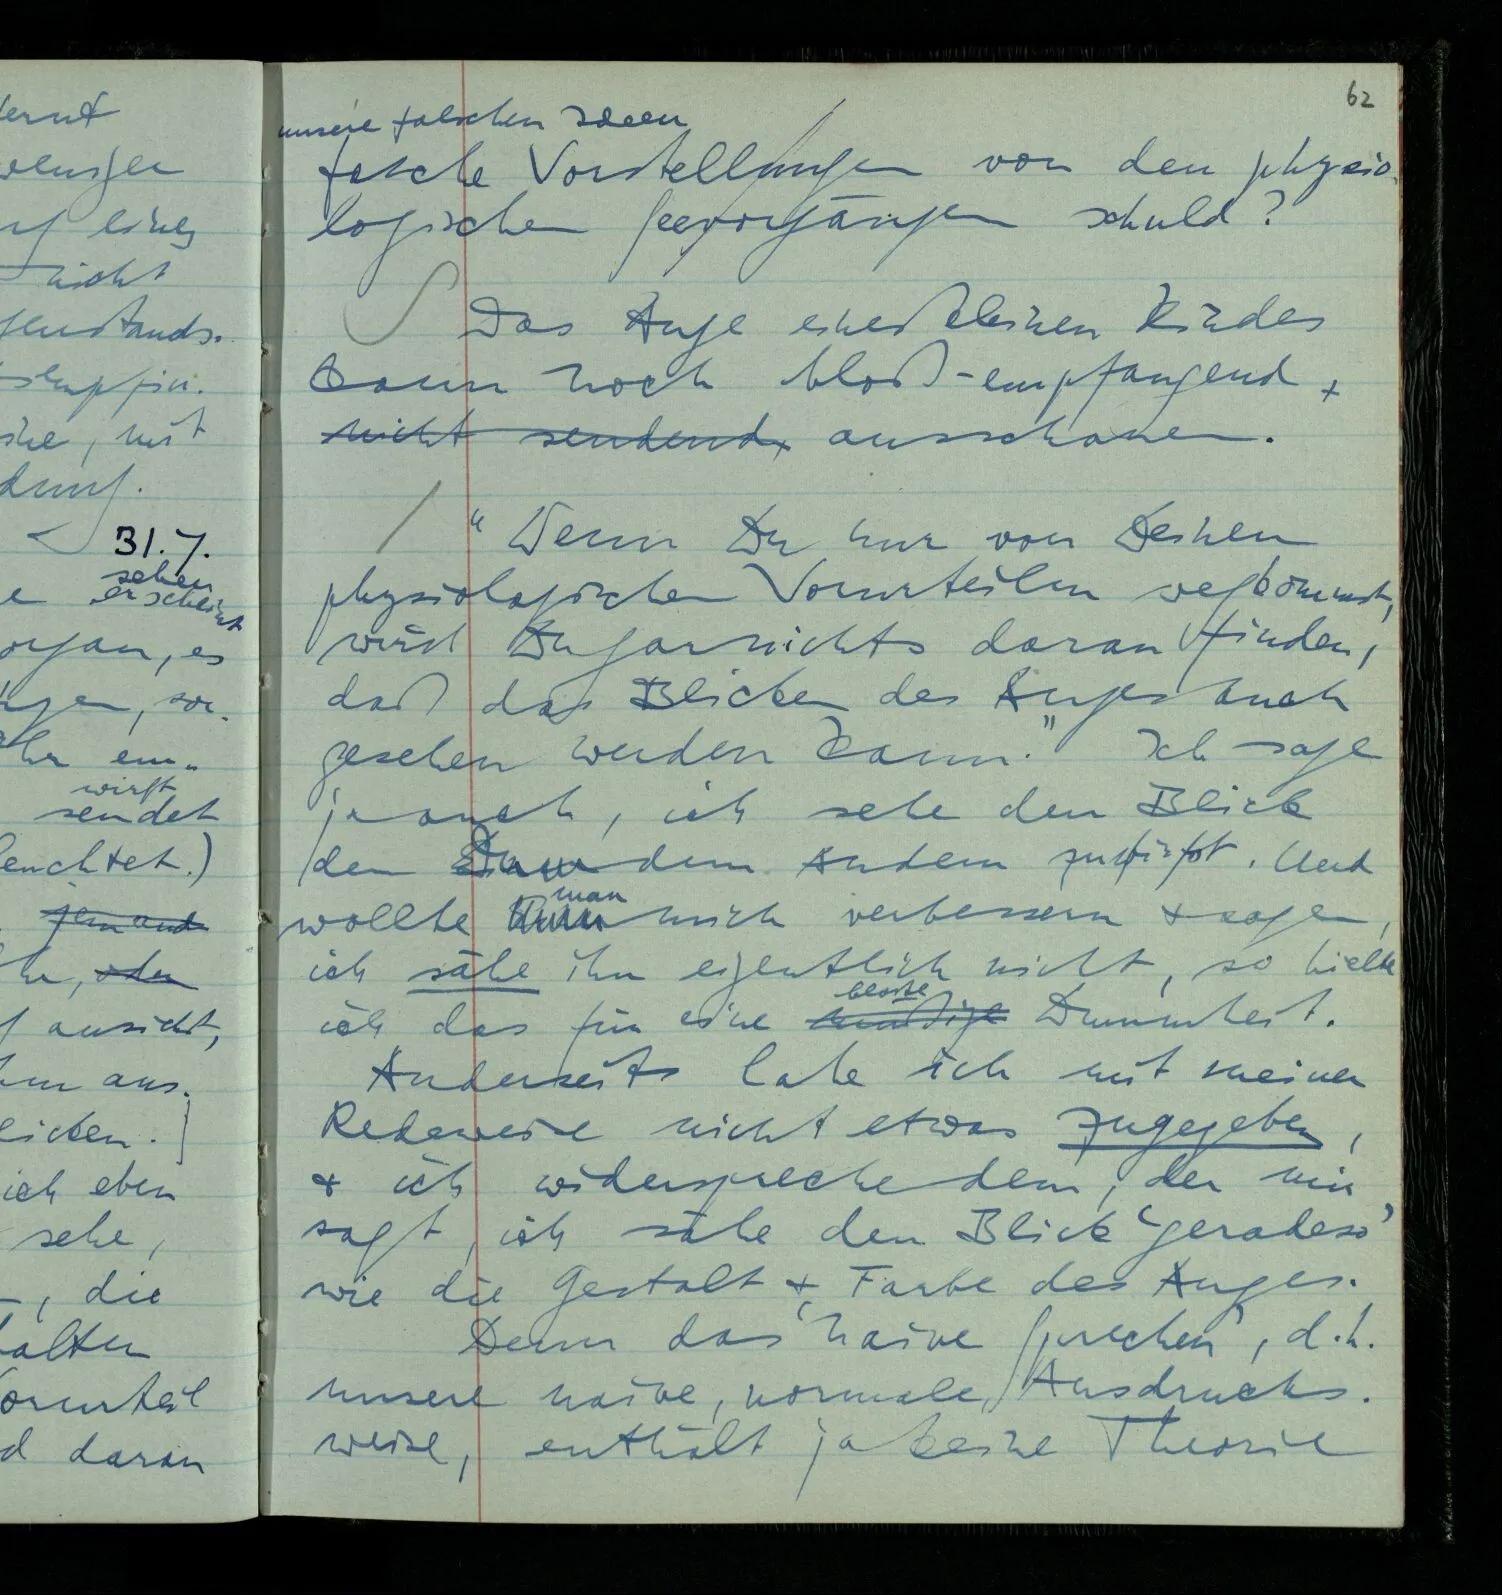 lernt
weniger
auf eines
nicht
genstands-
sempfin-
ohne, mit
dung.
31.7.
sehen
erscheint
organ, es
sehr em-
wirft
sendet
leuchtet.)
jemand
oder
ansieht,
ihm aus.
blicken.]
ich eben
sehe,
–, die
halten
Vorurteil
daran
62
unsere falschen Ideen
falsche Vorstellungen von den physio-
logischen Sehvorgängen schuld?
Das Auge eines kleinen Kindes
kann noch bloß-empfangend +
nicht sendend, ausschauen.
"Wenn Du nur von Deinen
physiologischen Vorurteilen wegkommst,
wirst Du garnichts daran finden,
daß das Blicken des Auges auch
gesehen werden kann." Ich sage
ja auch, ich sehe den Blick
den Du dem Andern zuwirfst. Und
wollte man mich verbessern + sagen,
ich sähe ihn eigentlich nicht, so hielte
bloße
ich das für eine Dummheit.
Anderseits habe ich mit meiner
Redeweise nicht etwas zugegeben,
+ ich widerspreche dem, der mir
sagt, ich sähe den Blick 'geradeso'
wie die Gestalt + Farbe des Auges.
Denn das 'naive Sprechen', d.h.
unsere naive, normale, Ausdrucks-
weise, enthält ja keine Theorie